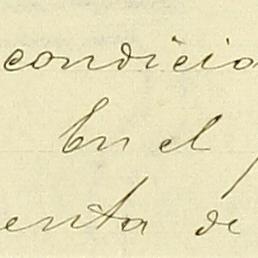 condicio
En el
enta de